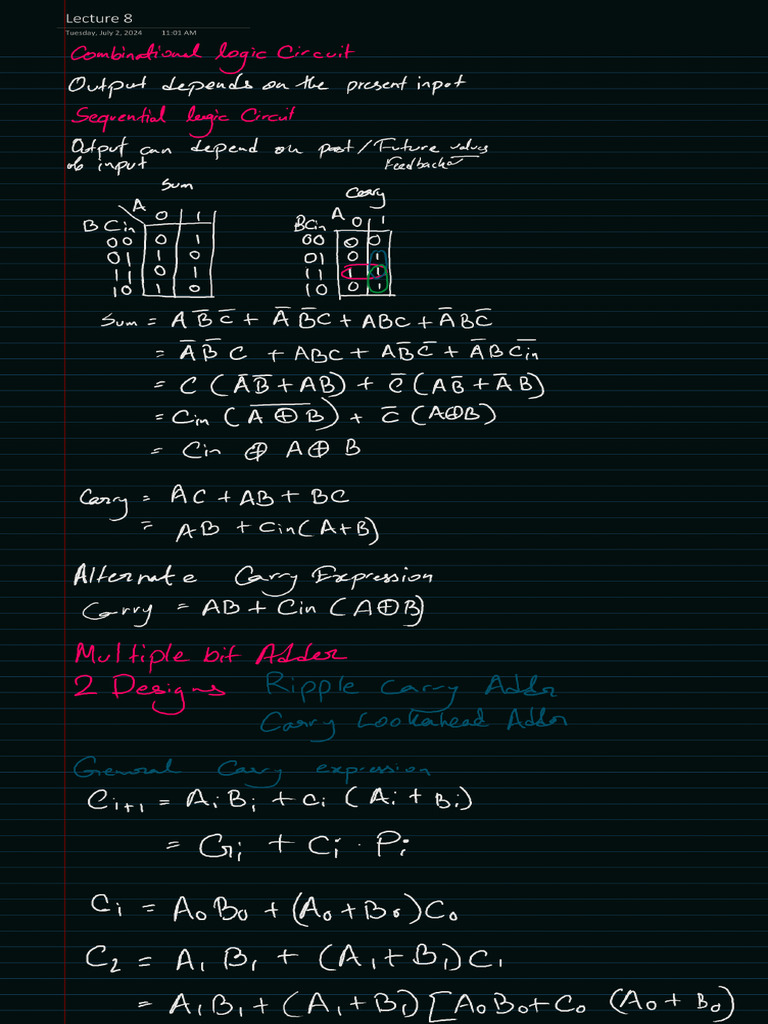 Lecture 8
Tuesday, July 2, 2024 11:01 AM
Combinational logic Circuit
Output depends on the present input
Sequential logic Circuit
Output can depend on past/Future values
of input Feedback
Sum Carry
A 0 1 A 0 1
B Cin BCin
00 0 1 00 0 0
01 1 0 01 0 1
11 0 1 11 1 1
10 1 0 10 0 1
Sum = A B̅ C̅ + A̅ B̅ C + ABC + A̅ B C̅
= A̅ B̅ C + ABC + A B̅ C̅ + A̅ B C̅i̅n̅
= C (A̅ B̅ + AB) + C̅ (A B̅ + A̅ B)
= Cin (A̅ ⊕̅ B̅) + C̅ (A⊕B)
= Cin ⊕ A ⊕ B
Carry = AC + AB + BC
= AB + Cin(A+B)
Alternate Carry Expression
Carry = AB + Cin (A⊕B)
Multiple bit Adder
2 Designs Ripple Carry Adder
Carry Lookahead Adder
General Carry expression
Cᵢ₊₁ = AᵢBᵢ + Cᵢ (Aᵢ + Bᵢ)
= Gᵢ + Cᵢ · Pᵢ
C₁ = A₀B₀ + (A₀+B₀)C₀
C₂ = A₁ B₁ + (A₁+B₁)C₁
= A₁B₁ + (A₁+B₁)[A₀B₀+C₀ (A₀+B₀)